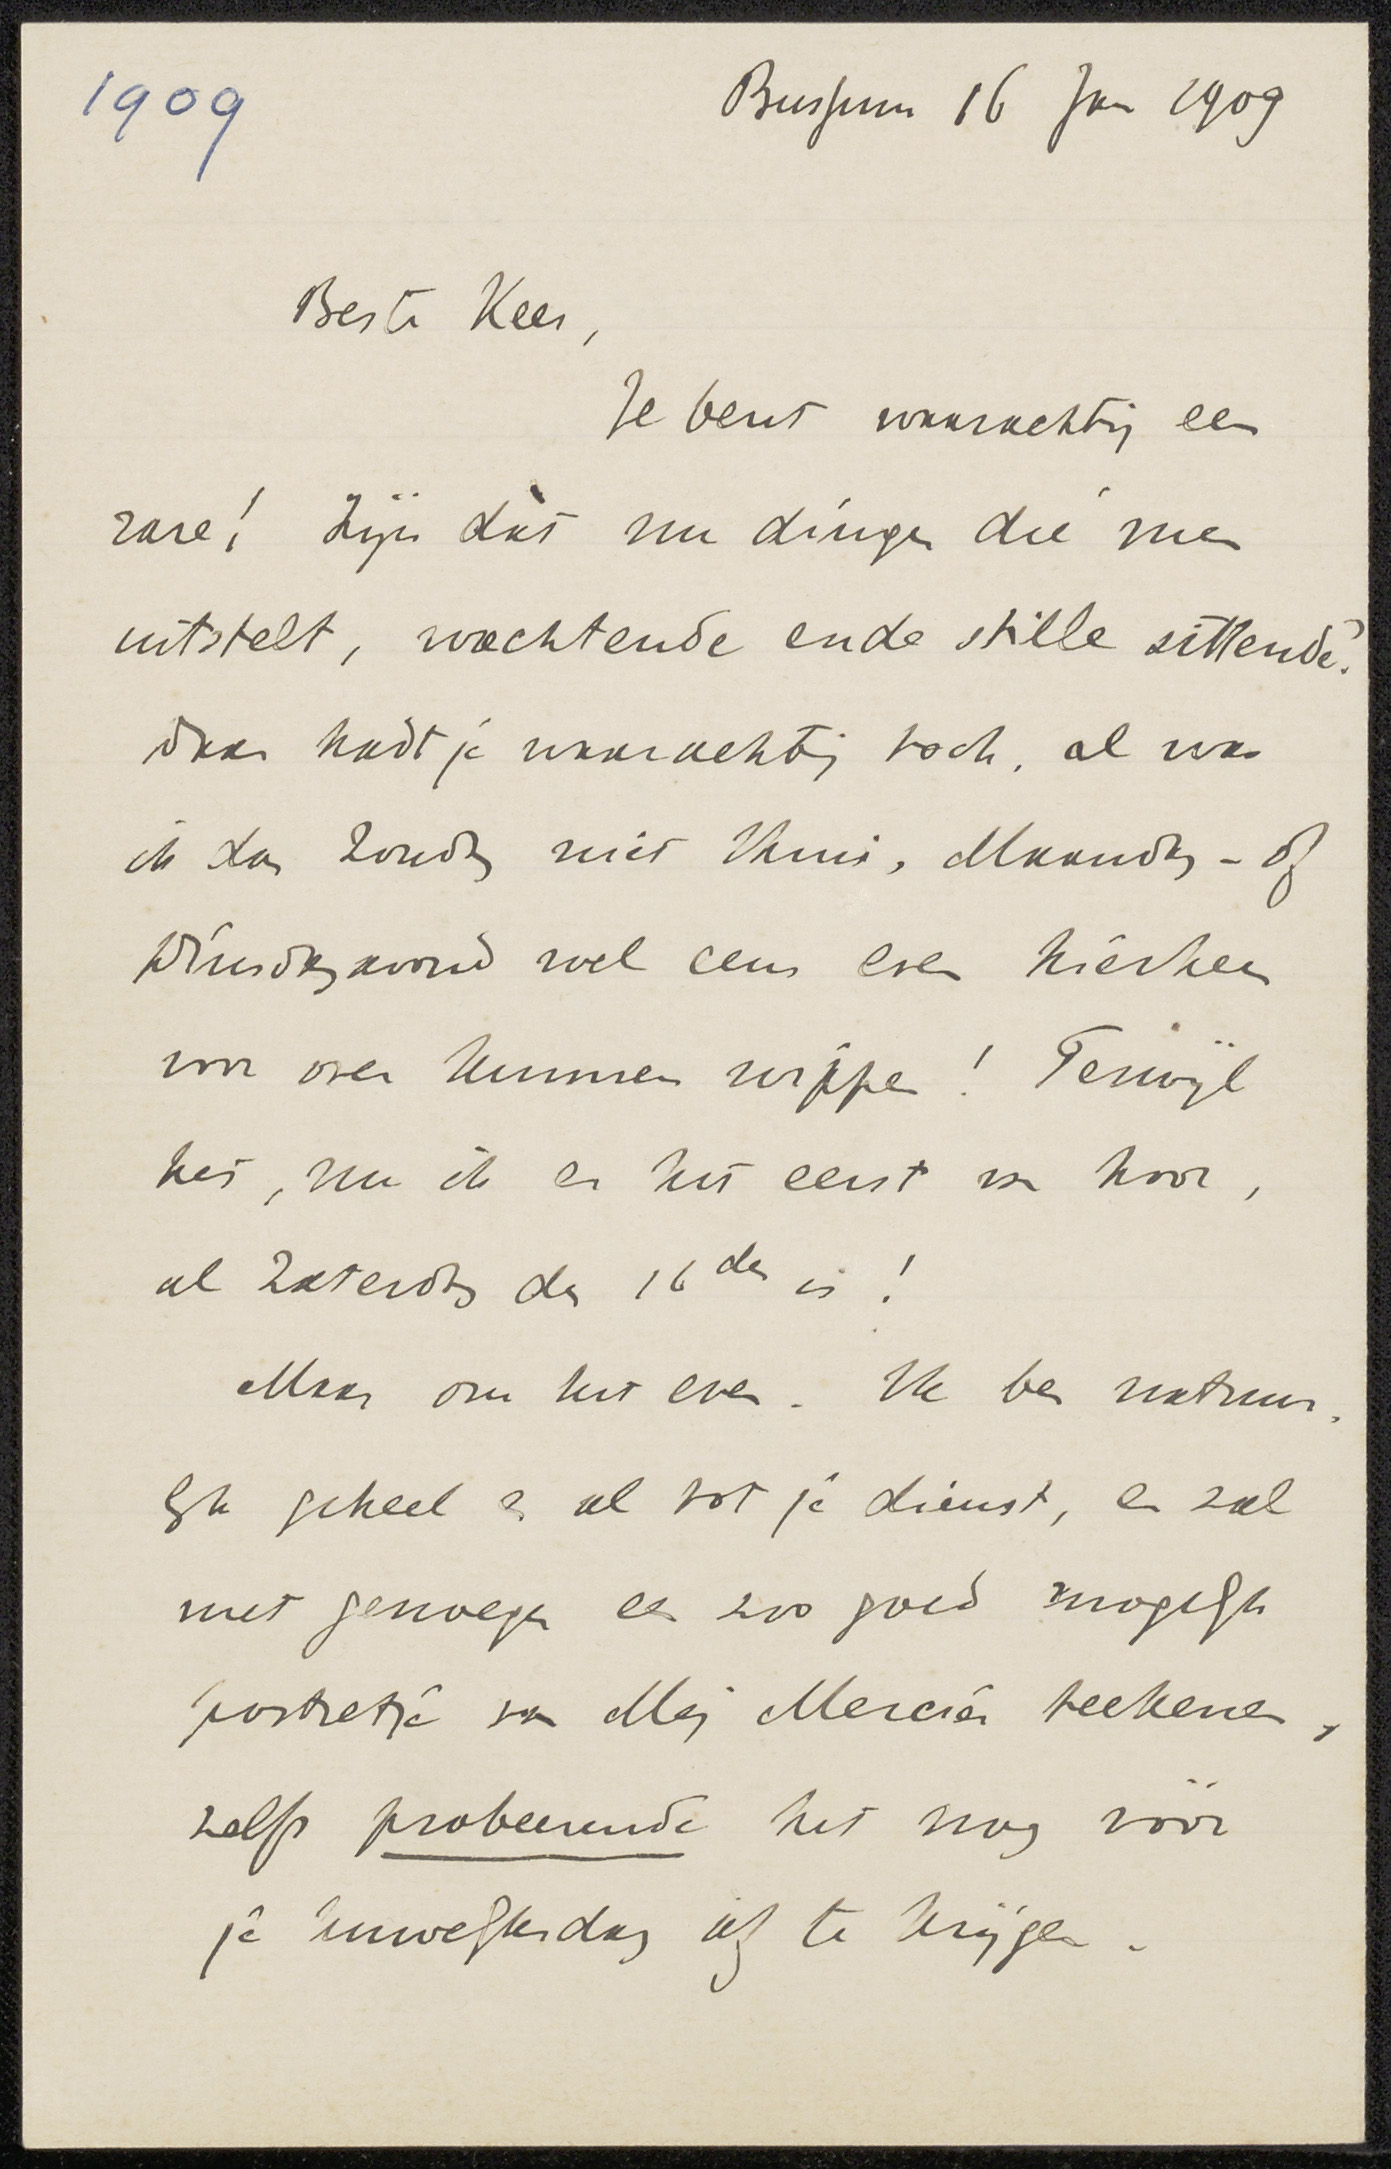 1909
Bussum 16 Jan 1909
Beste Kees,
Je bent waarachtig een
rare! Zijn dàt nu dingen die men
uitstelt, wachtende ende stille sittende?
Daar hadt je waarachtig toch, al was
ik dan Zondag niet thuis, Maandag- of
Dinsdagavond wel eens even hierheen
voor over kunnen wippen! Terwijl
het, nu ik er het eerst van hoor,
al Zaterdag den 16den is!
Maar om het even. Ik ben natuur-
lijk geheel en al tot je dienst, en zal
met genoegen een zoo goed mogelijk
portretje van Mej Mercier teekenen,
zelfs probeerende het nog vóór
je huwelijksdag af te krijgen.